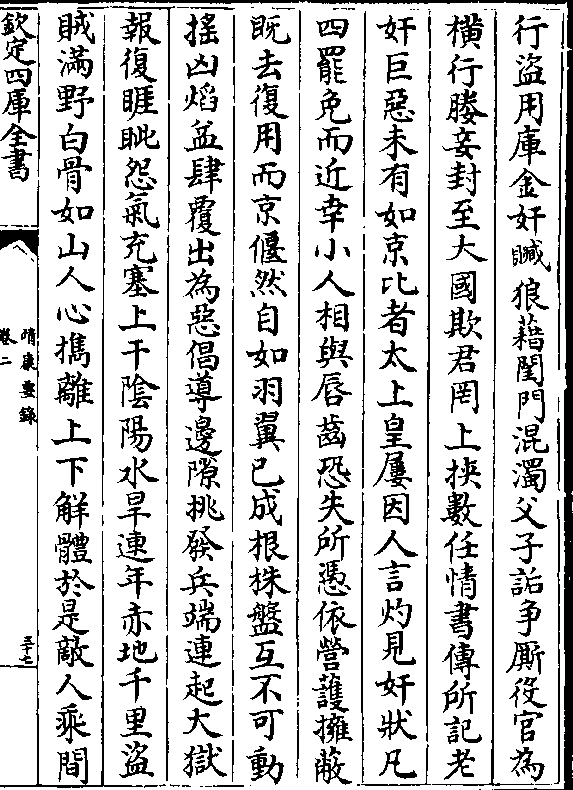 行盗用庫金奸贓狼藉閨門混濁父子詬争厮役官為
横行媵妾封至大國欺君罔上挾數任情書傳所記老
奸巨惡未有如京比者太上皇屢因人言灼見奸狀凡
四罷免而近幸小人相與唇齒恐失所憑依營護擁蔽
既去復用而京偃然自如羽翼已成根株盤互不可動
摇凶焰益肆覆出為惡倡導邊隙挑發兵端連起大獄
報復睚眦怨氣充塞上干陰陽水旱連年赤地千里盗
賊滿野白骨如山人心携離上下解體於是敵人乘間
欽定四庫全書
靖康要錄
卷二
三十七